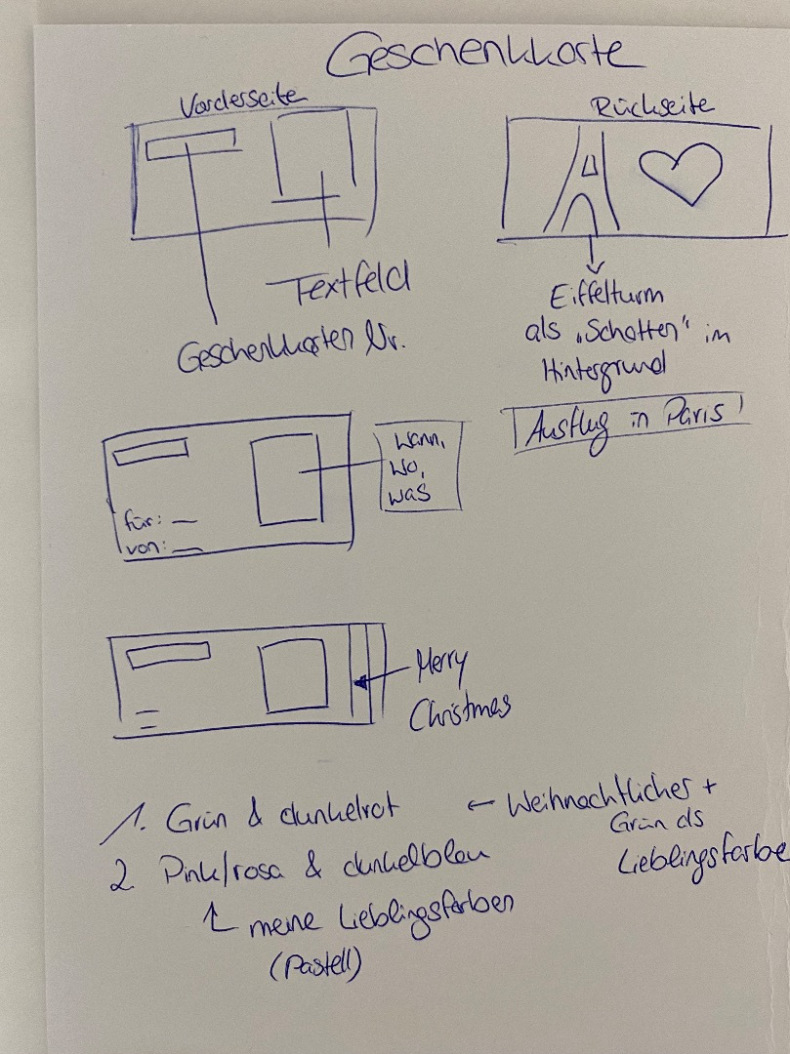 Geschenkkarte
Vorderseite
Rückseite
Textfeld
Geschenkkarten Nr.
Eiffelturm
als „Schatten" im
Hintergrund
Ausflug in Paris
Wann,
wo,
was
für:
von:
Merry
Christmas
1. Grün & dunkelrot
← Weihnachtliches +
Grün als
Lieblingsfarbe
2. Pink/rosa & dunkelblau
meine Lieblingsfarben
(Pastell)